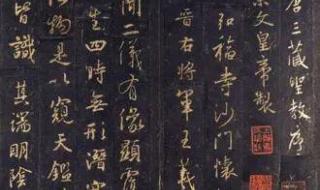 唐三藏聖教序
宗文皇帝製
弘福寺沙門懷
晉右將軍王羲
聞二儀有像顯
生四時無形潛寒
物是以窺天鑑
皆識其端明陰